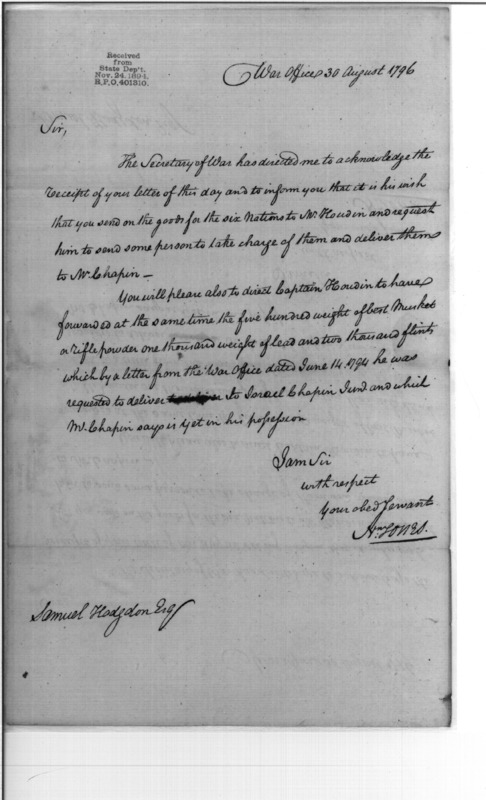 Received
from
State Dep't.
Nov. 24. 1894,
R.P.O. 401310.
War Office 30 August 1796
Sir,
The Secretary of War has directed me to acknowledge the
receipt of your letter of this day and to inform you that it is his wish
that you send on the goods for the six Nations to Mr. Houdin and request
him to send some person to take charge of them and deliver them
to Mr. Chapin —
You will please also to direct Captain Houdin to have
forwarded at the same time the five hundred weight of best Musket
or rifle powder one thousand weight of lead and two thousand flints
which by a letter from the War Office dated June 14. 1794 he was
requested to deliver to Israel Chapin Junr. and which
Mr. Chapin says is yet in his possession
I am Sir
with respect
Your obed Servant
Wm Jones.
Samuel Hodgdon Esq